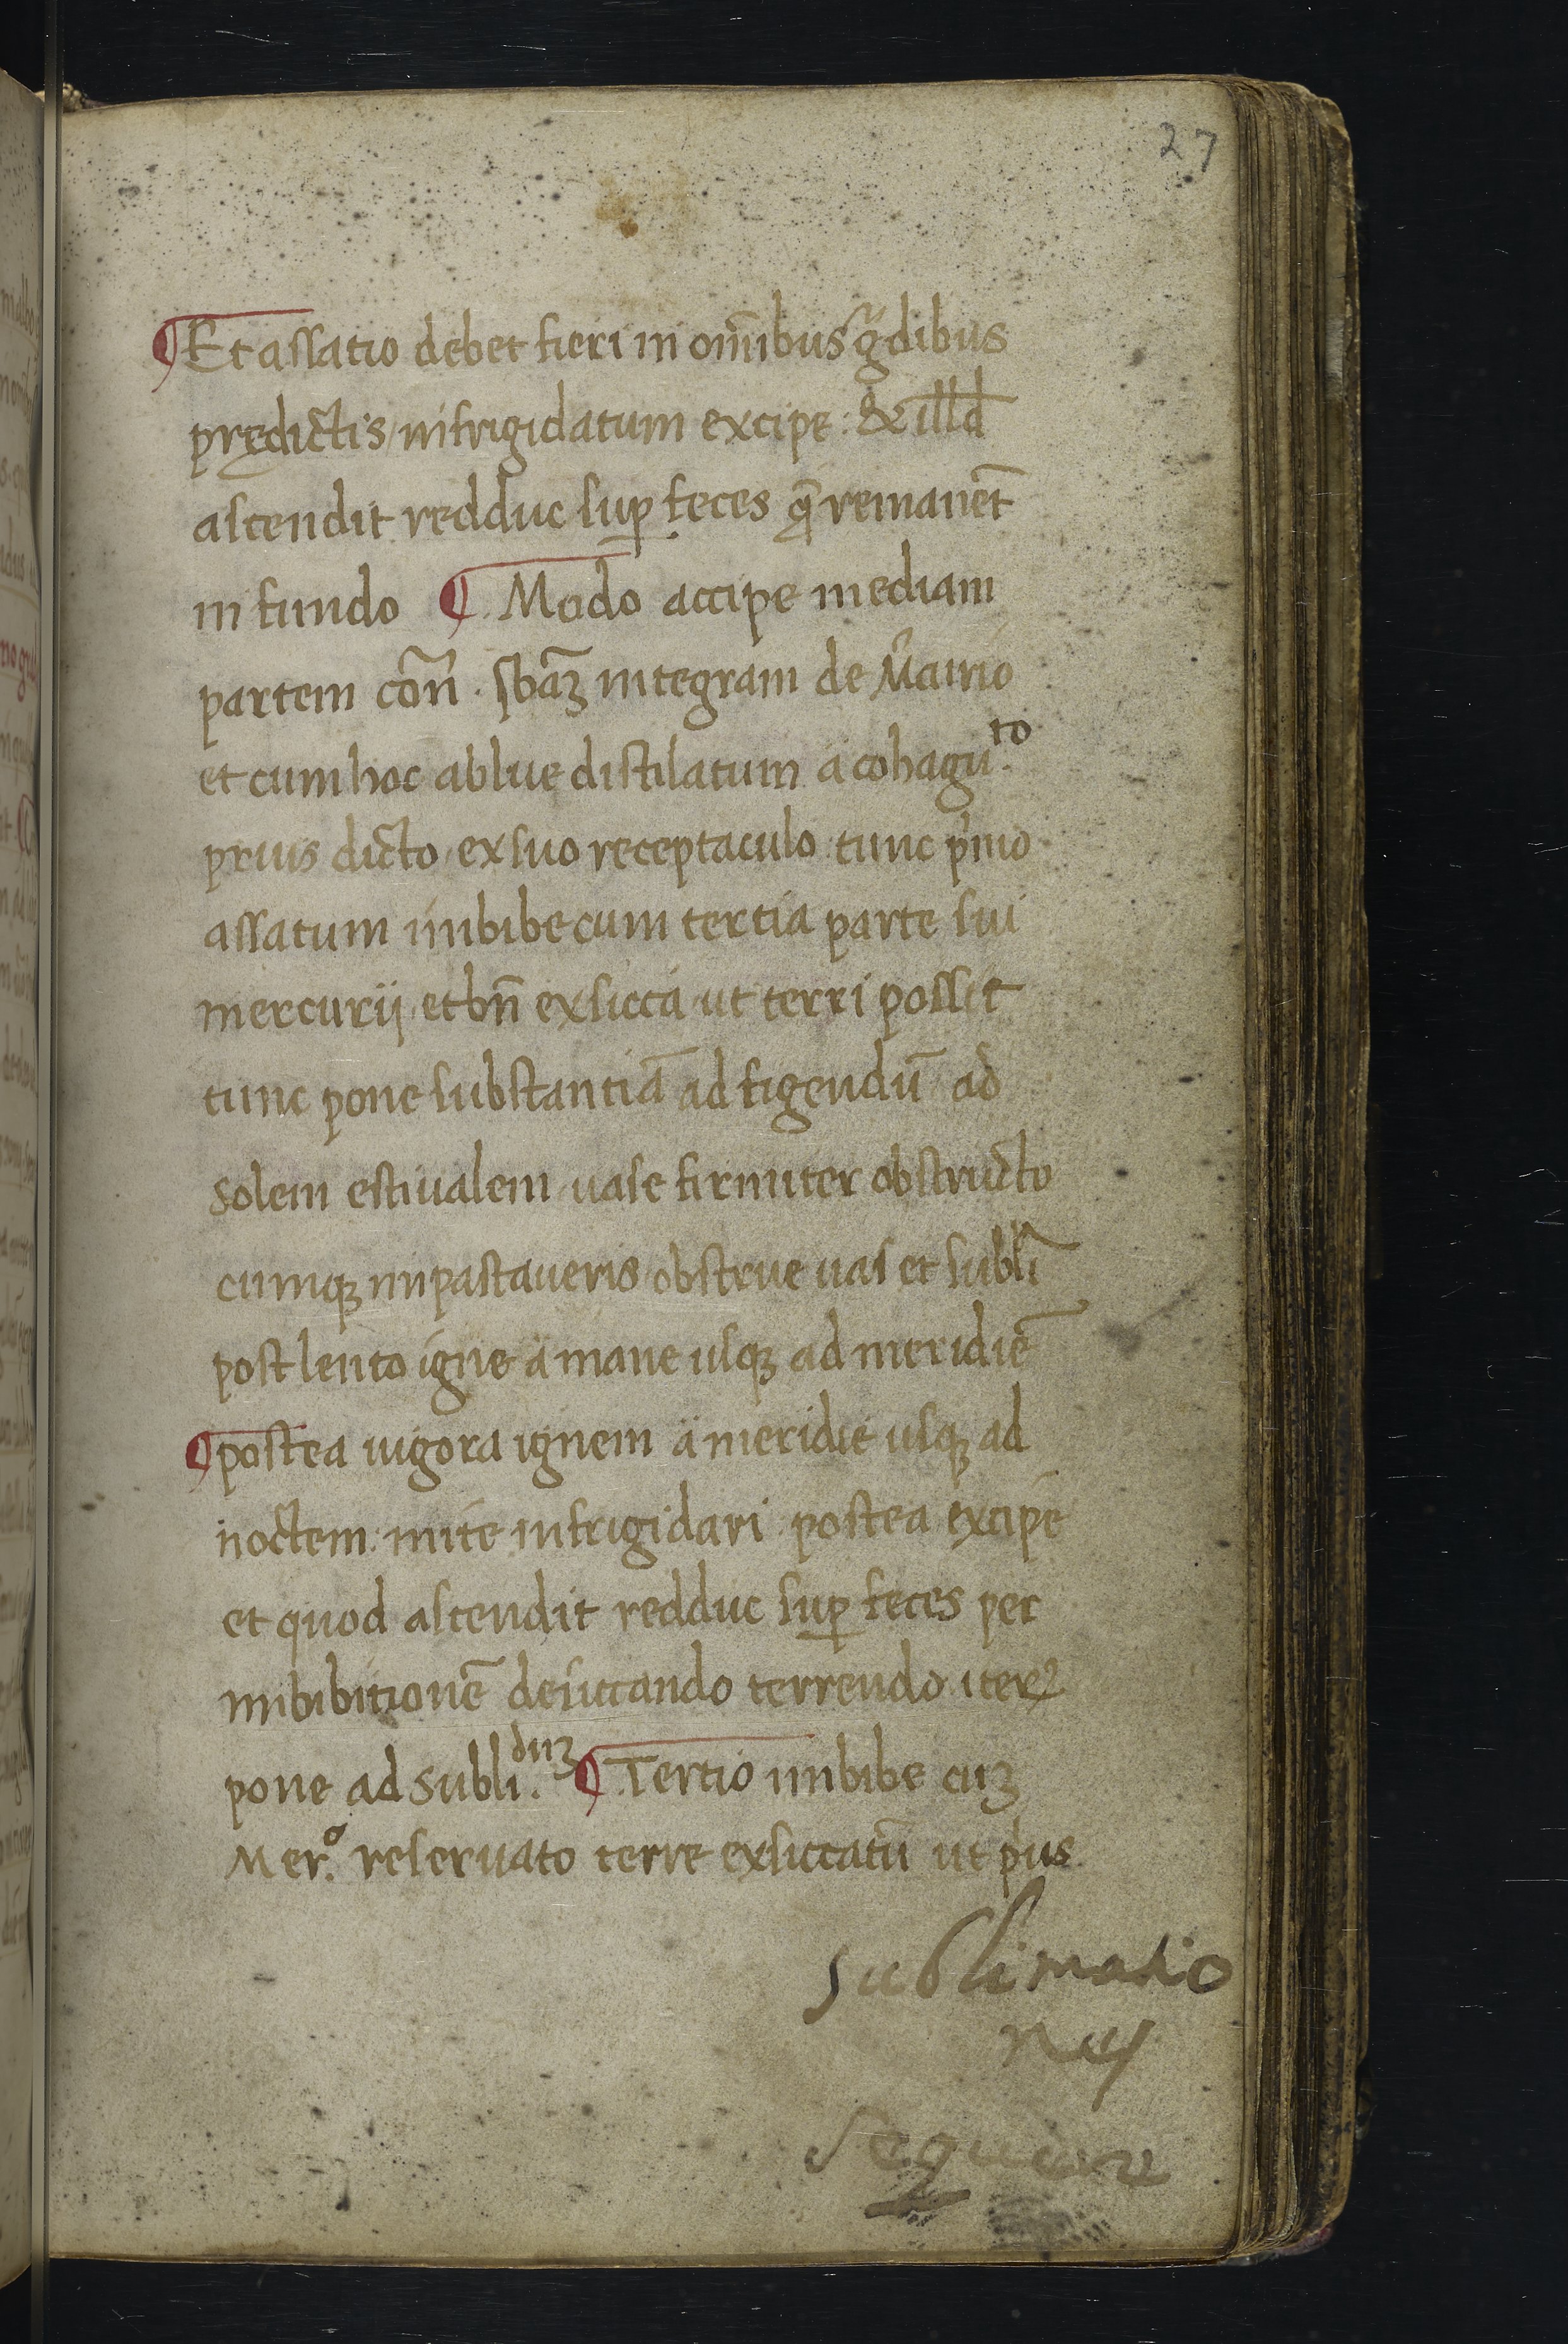 27
¶ Et assatio debet fieri in om̄ibus g̃dibus
prędictis / infrigidatum excipe : & illd̄
ascendit redduc suꝑ feces q̄ remanēt
in fundo ¶ Modo accipe mediam
partem con̄ . sbāꝫ integram de
et cum hoc ablue distilatum a cohaguᵗᵒ.
prius dicto / ex suo receptaculo tunc pͥmo
assatum imbibe cum tertia parte sui
mercurij / et bn̄ exsicca ut terri possit
tunc pone substantiā ad figendū ad
solem estiualem / uase firmiter obstructo
cumqꝫ inpastaueris / obstrue uas et subli᷉
post lento igne a mane usqꝫ ad meridiē
¶ postea uigora ignem a meridie usqꝫ ad
noctem : mite infrigidari postea excipe
et quod ascendit redduc suꝑ feces per
imbibitionē desiccando terrendo iteꝝ
pone ad subli.dūꝫ ¶ Tertio imbibe cuꝫ
Mer.º reseruato terre exsiccatū ut pͥus
sublimatio